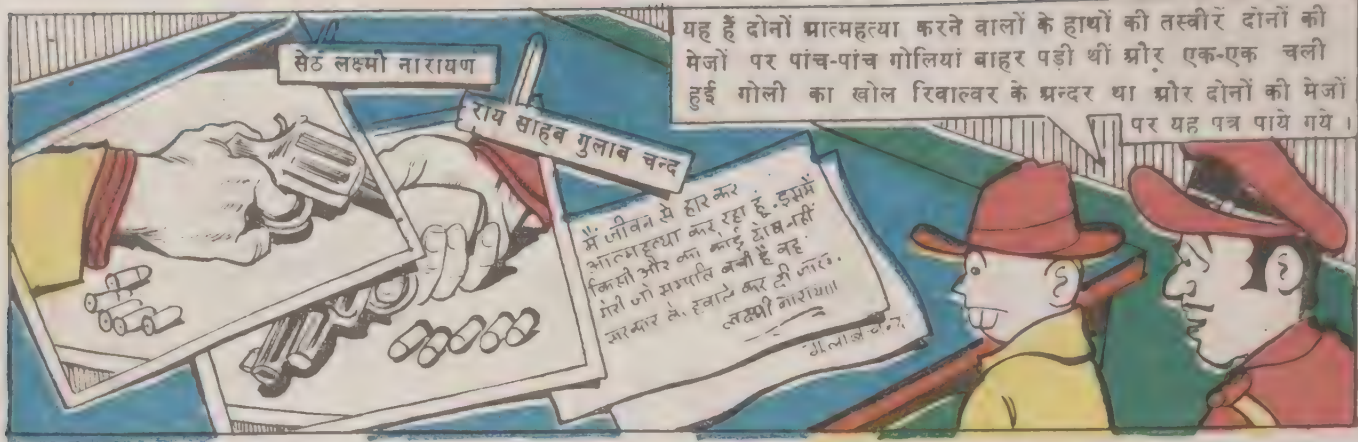 सेठ लक्ष्मी नारायण
राय साहब गुलाब चन्द
यह हैं दोनों आत्महत्या करने वालों के हाथों की तस्वीरें दोनों की
मेजों पर पांच-पांच गोलियां बाहर पड़ी थीं और एक-एक चली
हुई गोली का खोल रिवाल्वर के अन्दर था और दोनों की मेजों
पर यह पत्र पाये गये।
मैं जीवन से हार कर
आत्महत्या कर रहा हूं. इसमें
किसी और का कोई दोष नहीं
मेरी जो सम्पति बची है वह
सरकार के हवाले कर दी जाए.
लक्ष्मी नारायण
गुलाब चन्द